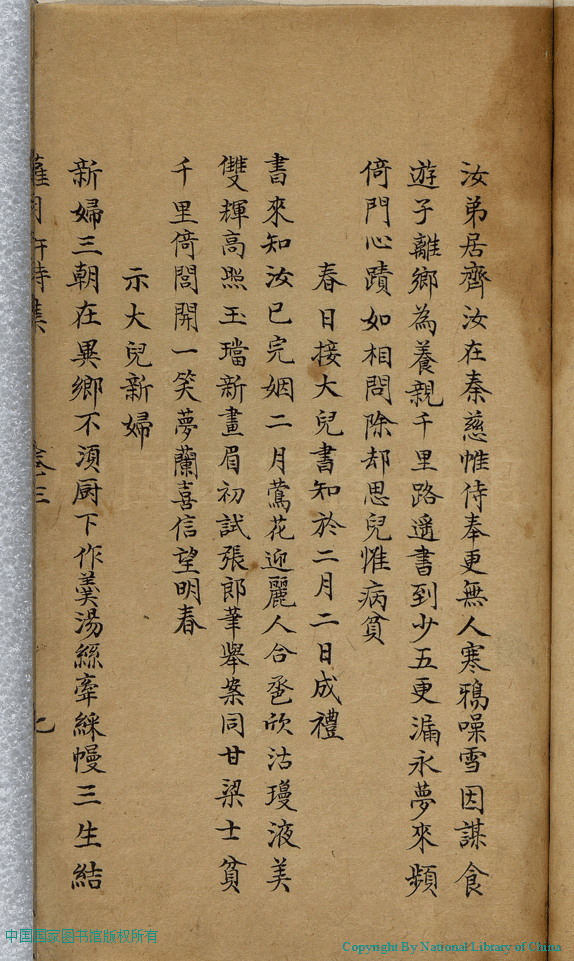 汝弟居齊汝在秦慈惟侍奉更無人寒鴉噪雪因謀食
遊子離鄉為養親千里路遥書到少五更漏永夢來頻
倚門心蹟如相問除却思兒惟病貧
春日接大兒書知於二月二日成禮
書來知汝已完姻二月鶯花迎麗人合巹欣沽瓊液美
雙輝高照玉璫新畫眉初試張郎筆舉案同甘梁士貧
千里倚閭開一笑夢蘭喜信望明春
示大兒新婦
新婦三朝在異鄉不須厨下作羹湯絲牽綵幔三生結
詩集 卷三
中国国家图书馆版权所有
Copyright By National Library of China